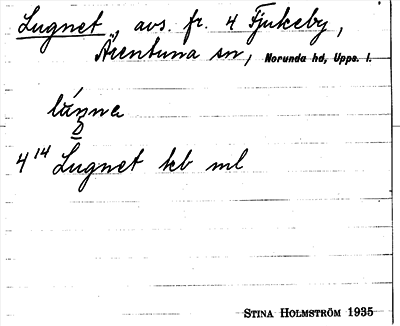 Lugnet, avs. fr. 4 Fjukeby,
Ärentuna sn, Norunda hd, Upps. l.
4¹⁴ Lugnet kb ml
STINA HOLMSTRÖM 1935